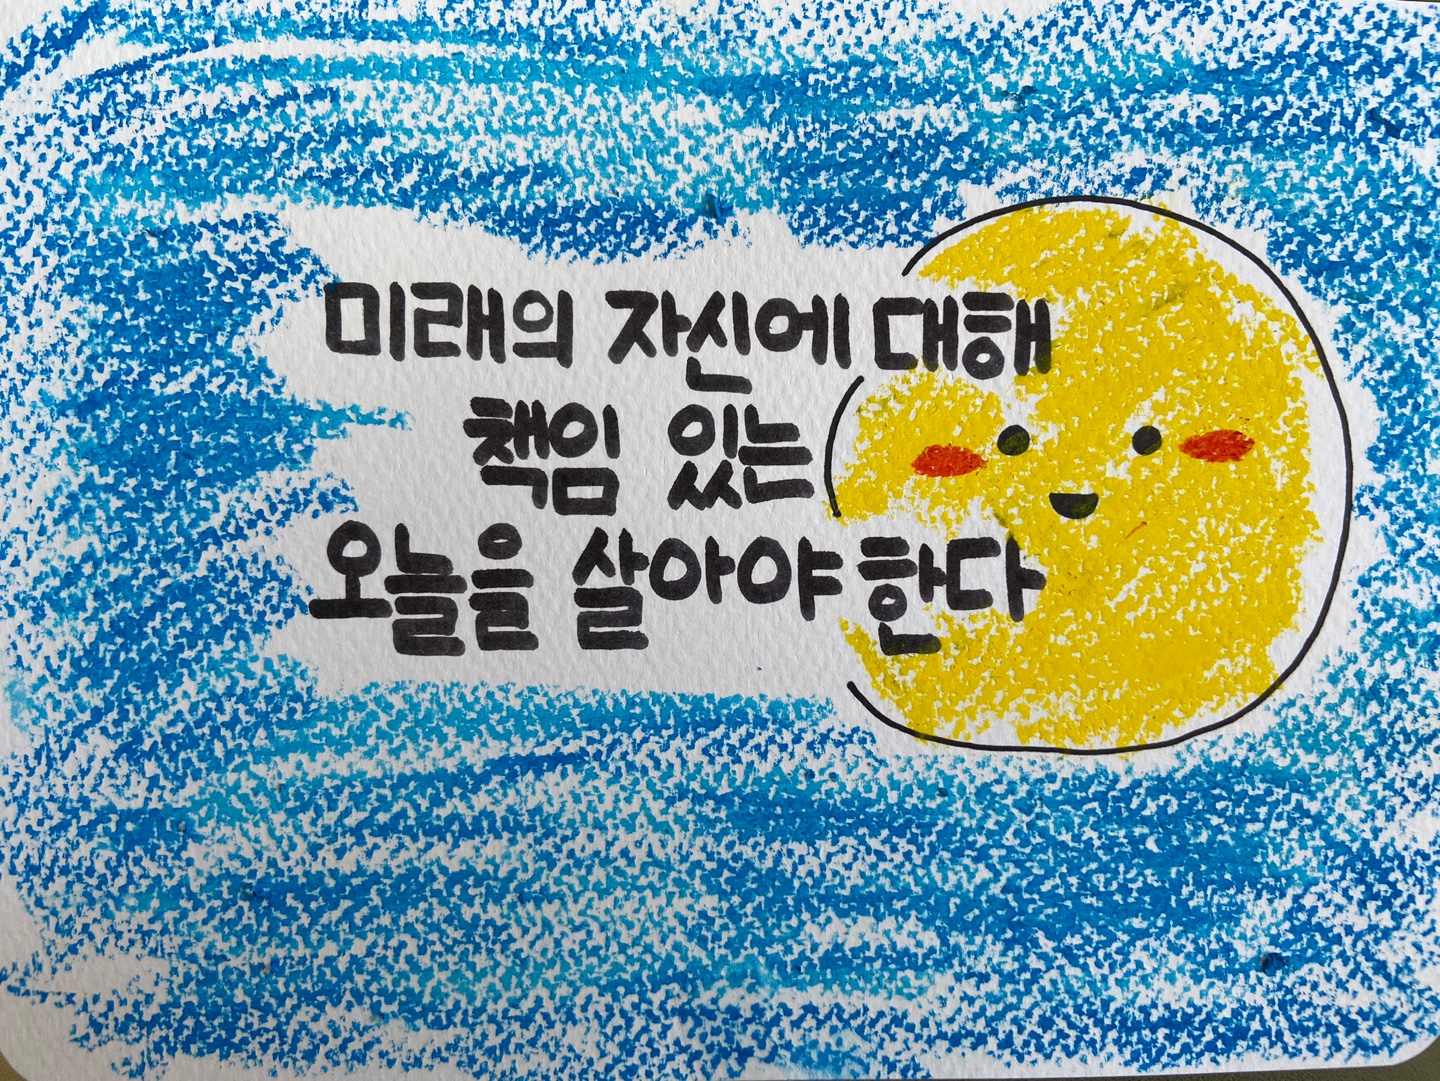 미래의 자신에 대해
책임 있는
오늘을 살아야 한다